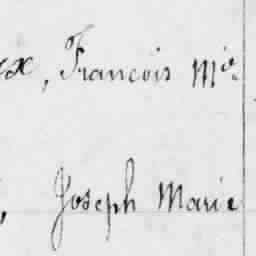 , François Mie
, Joseph Marie